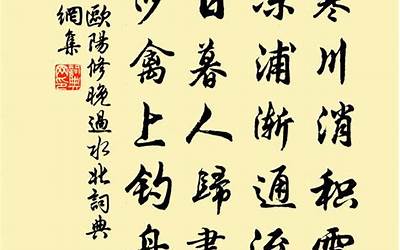 寒川消积雪
凍浦渐通流
日暮人歸盡
沙禽上钓舟
歐陽修晚過水北詞典
網集